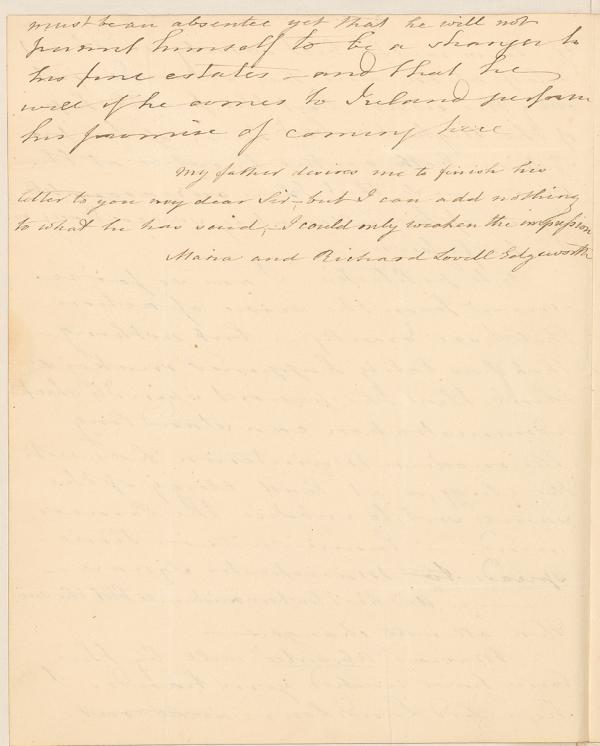 must be an absentee yet that he will not
permit himself to be a stranger to
his fine estates - and that he
will if he comes to Ireland perform
his promise of coming here
My father desires me to finish his
letter to you my dear Sir - but I can add nothing
to what he has said; I could only weaken the impression
Maria and Richard Lovell Edgeworth